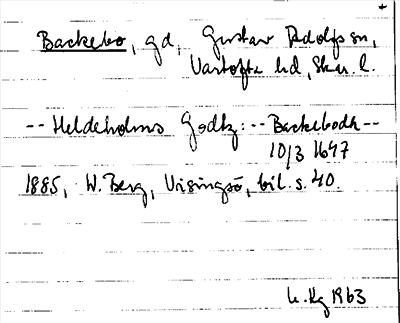 Backebo, gd, Gustav Adolfs sn,
Vartofta hd, Skar. l.
-- Heldeholms Godtz: -- Backebodh --
10/3 1647
1885, W. Berg, Visingsö, bil. s. 40.
1963